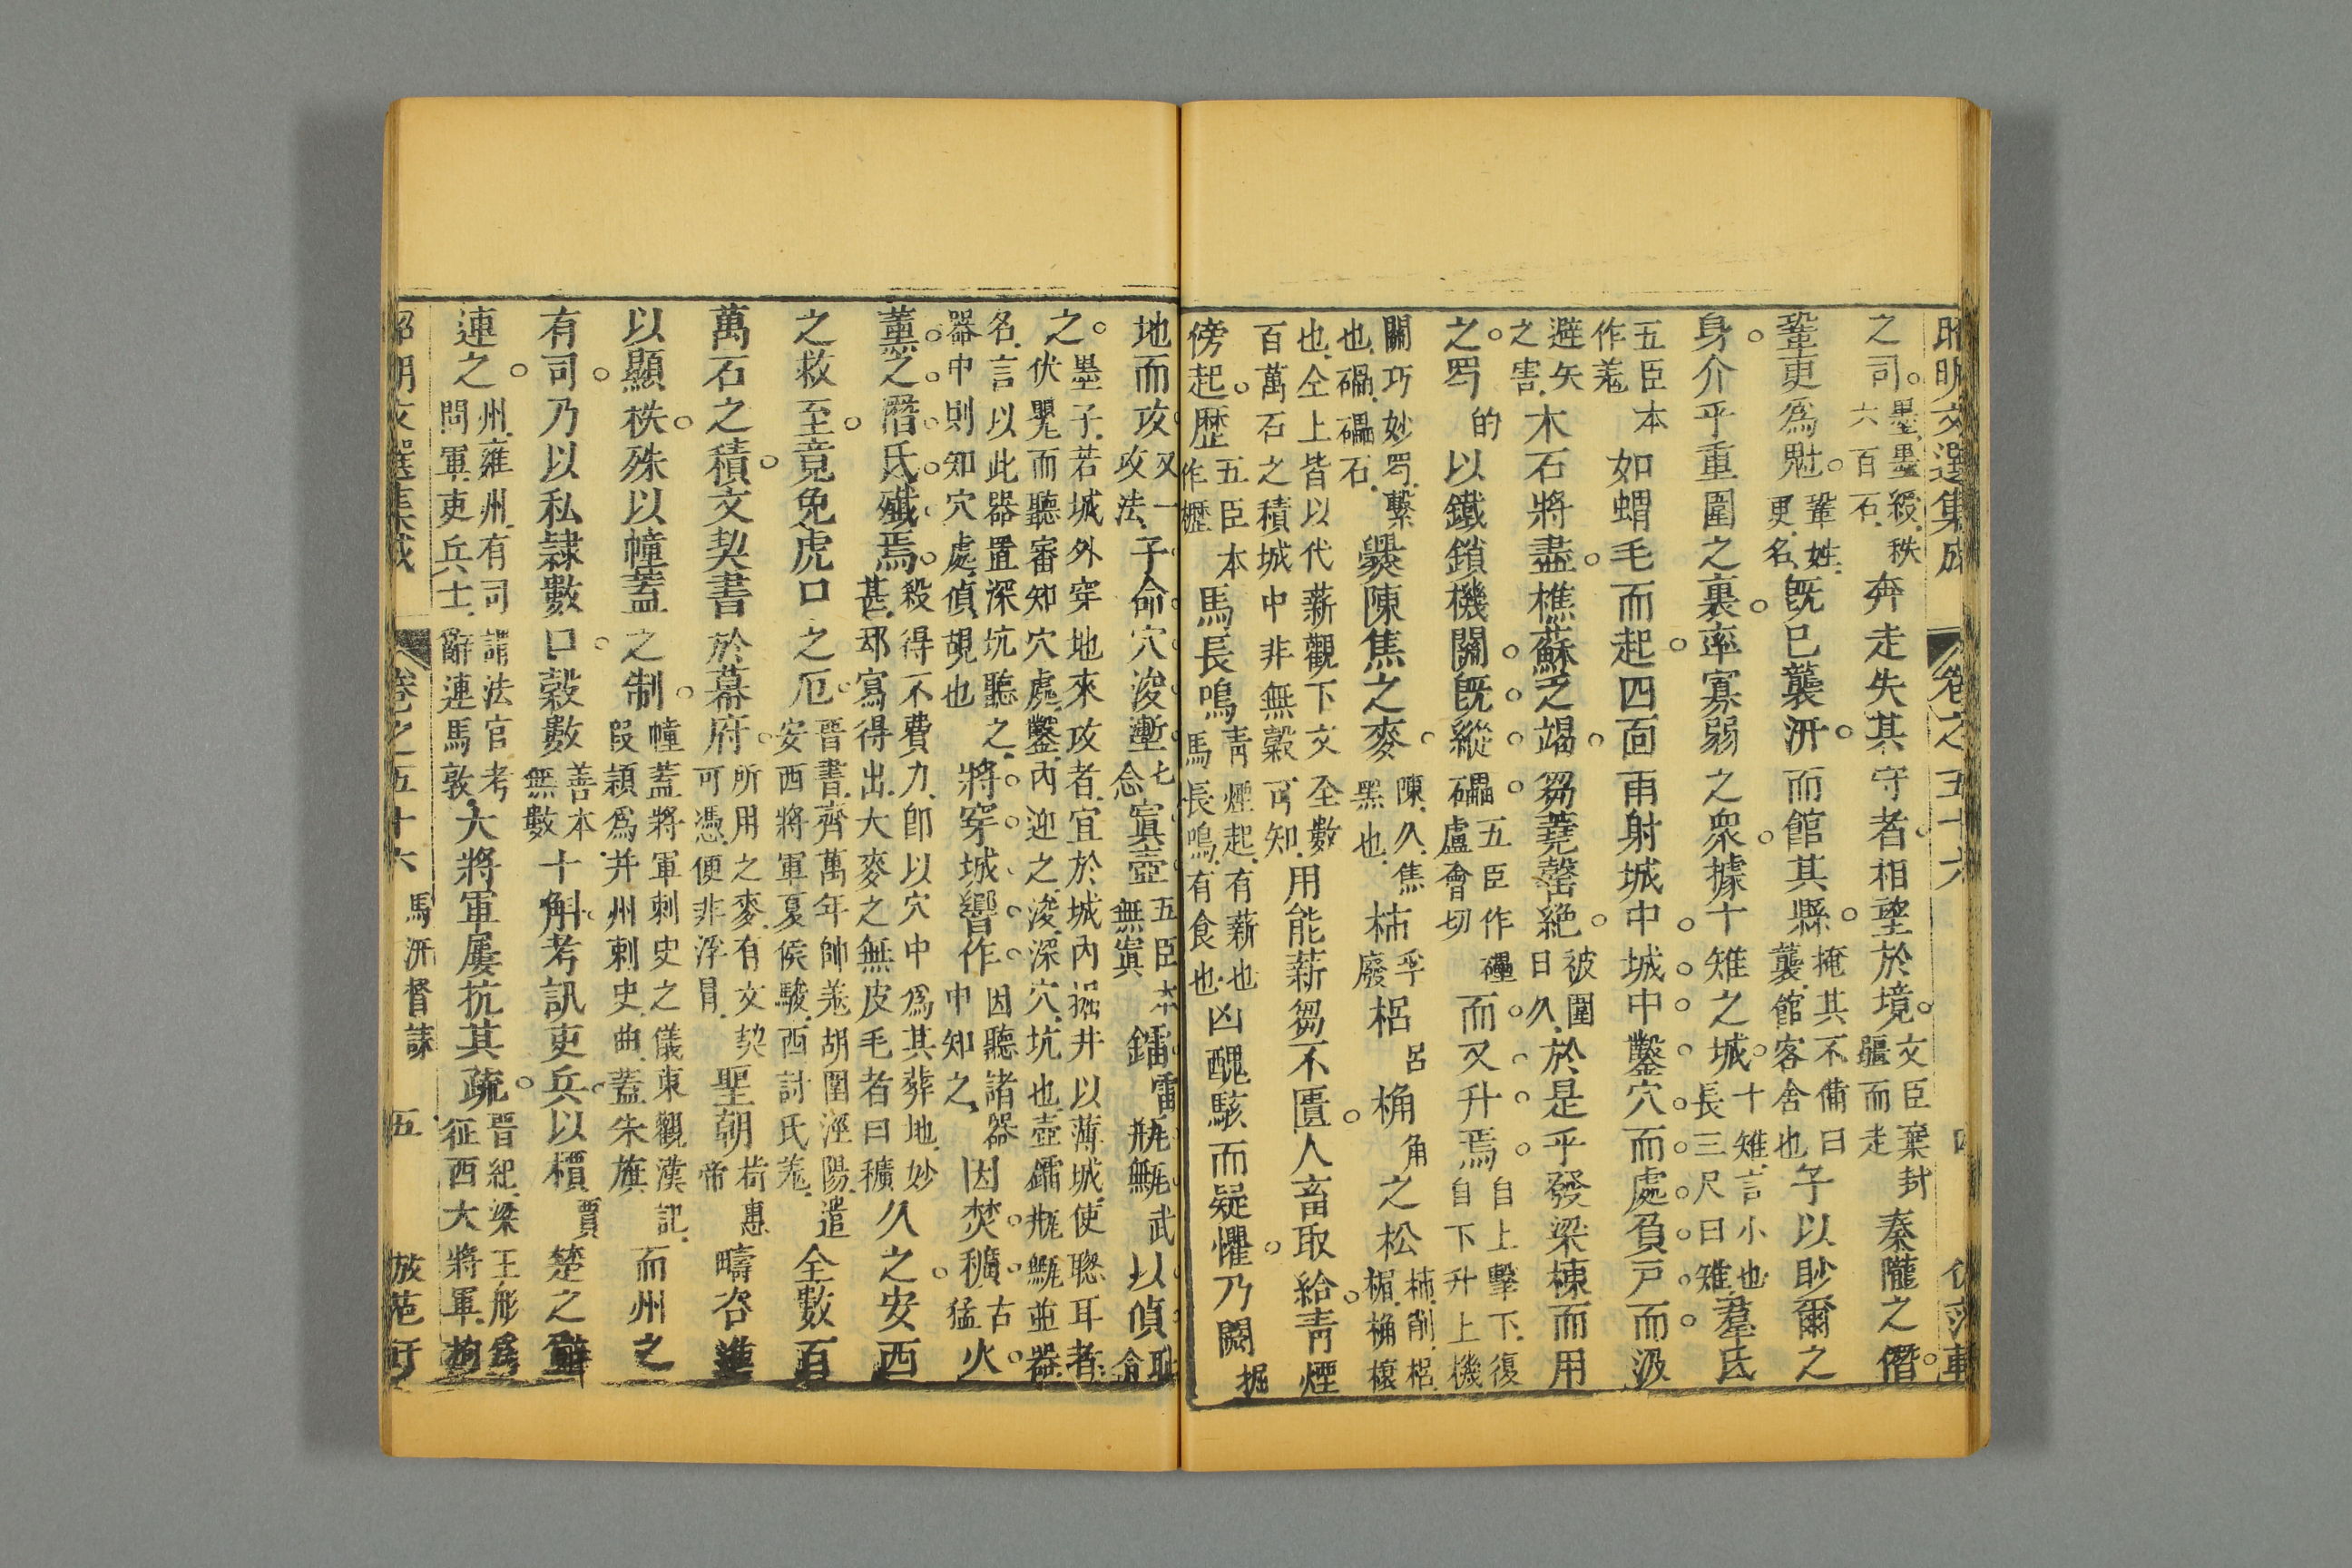 昭明文選集成 卷之五十六 四
之司墨墨綬秩六百石奔走失其守者相望於境文臣棄封疆而走秦隴之僭
鞏更爲魁鞏姓更名既已襲汧而館其縣掩其不備曰襲館客舍也子以眇爾之
身介乎重圍之裏率寡弱之衆據十雉之城十雉言小也長三尺曰雉羣氐
五臣本作羗如蝟毛而起四面雨射城中城中鑿穴而處負戸而汲
避矢之害木石將盡樵蘇之竭芻蕘罄絶被圍日久於是乎發梁棟而用
之罥的以鐵鎖機關既縱礧五臣作礨盧會切而又升焉自上擊下復自下升上機
關巧妙罥繫也礧礧石爨陳焦之麥陳久焦黑也柿孚廢梠呂桷角之松柿削梠楣桷榱
也仝上皆以代薪觀下文仝數百萬石之積城中非無穀可知用能薪芻不匱人畜取給青煙
傍起歷五臣本作櫪馬長鳴青煙起有薪也馬長鳴有食也凶醜駭而疑懼乃闕掘
地而攻又一攻法子命穴浚壍七念寘壺五臣本無寘鐳雷瓶甒武以偵
之墨子若城外穿地來攻者宜於城內掘井以薄城使聰耳者伏甖而聽審知穴處鑿內迎之浚深穴坑也壺鐳瓶甒並器
名言以此器置深坑聽之器中則知穴處偵覘也將穿城響作因聽諸器中知之因焚穬古猛火
薫之潛氐殲焉殺得不費力即以穴中爲其葬地妙甚却寫得出大麥之無皮毛者曰穬久之安西
之救至竟免虎口之厄晉書齊萬年帥羗胡圍涇陽遣安西將軍夏侯駿西討氐羗全數百
萬石之積文契書於幕府所用之麥有文契可憑便非浮冒聖朝惠帝疇咨進
以顯秩殊以幢蓋之制幢蓋將軍刺史之儀東觀漢記叚穎爲并州刺史曲蓋朱旗而州之
有司乃以私隸數口穀數善本無數十斛考訊吏兵以檟賈楚之辭
連之州雍州有司謂法官考問軍吏兵士辭連馬敦大將軍屢抗其疏晉紀梁王肜爲征西大將軍
昭明文選集成 卷之五十六 馬汧督誄 五